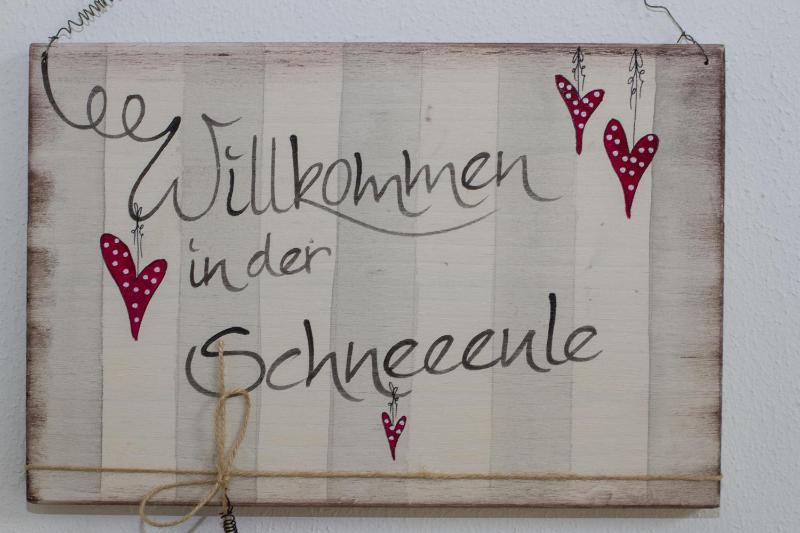 Willkommen
in der
Schneeeule